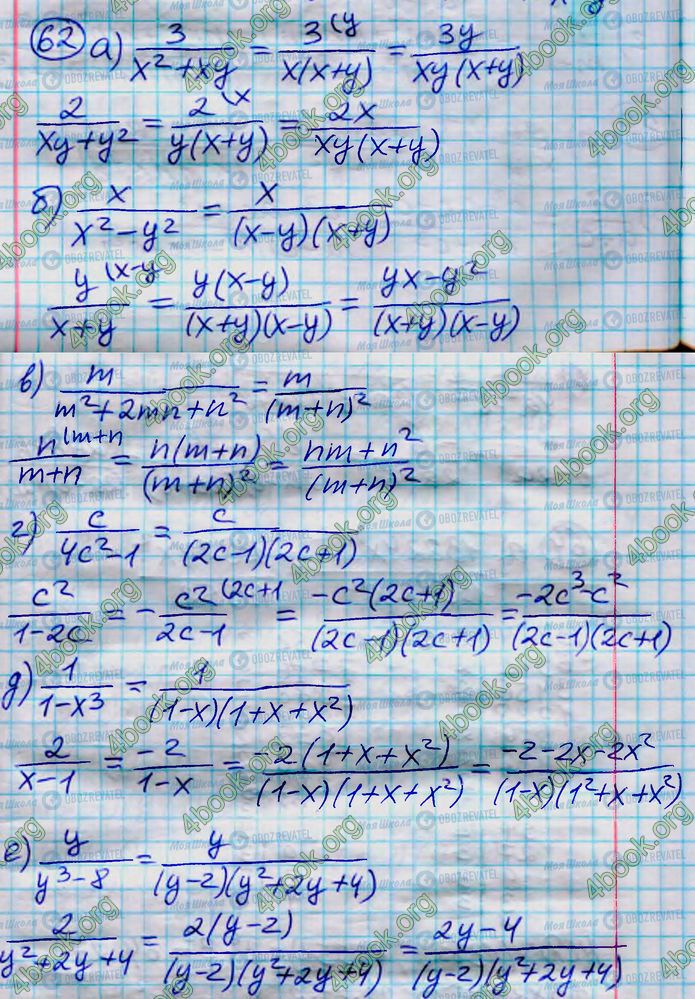 62 а) 3/(x²+xy) = 3(y/(x(x+y)) = 3y/(xy(x+y))
2/(xy+y²) = 2(x/(y(x+y)) = 2x/(xy(x+y))
б) x/(x²-y²) = x/((x-y)(x+y))
y(x-y/(x+y) = y(x-y)/((x+y)(x-y)) = (yx-y²)/((x+y)(x-y))
в) m/(m²+2mn+n²) = m/(m+n)²
n(m+n/(m+n) = n(m+n)/(m+n)² = (nm+n²)/(m+n)²
г) c/(4c²-1) = c/((2c-1)(2c+1))
c²/(1-2c) = - c²(2c+1/(2c-1) = -c²(2c+1)/((2c-1)(2c+1)) = (-2c³-c²)/((2c-1)(2c+1))
д) 1/(1-x³) = 1/((1-x)(1+x+x²))
2/(x-1) = -2/(1-x) = -2(1+x+x²)/((1-x)(1+x+x²)) = (-2-2x-2x²)/((1-x)(1²+x+x²))
е) y/(y³-8) = y/((y-2)(y²+2y+4))
2/(y²+2y+4) = 2(y-2)/((y-2)(y²+2y+4)) = (2y-4)/((y-2)(y²+2y+4))
4book.org
Моя Школа
OBOZREVATEL